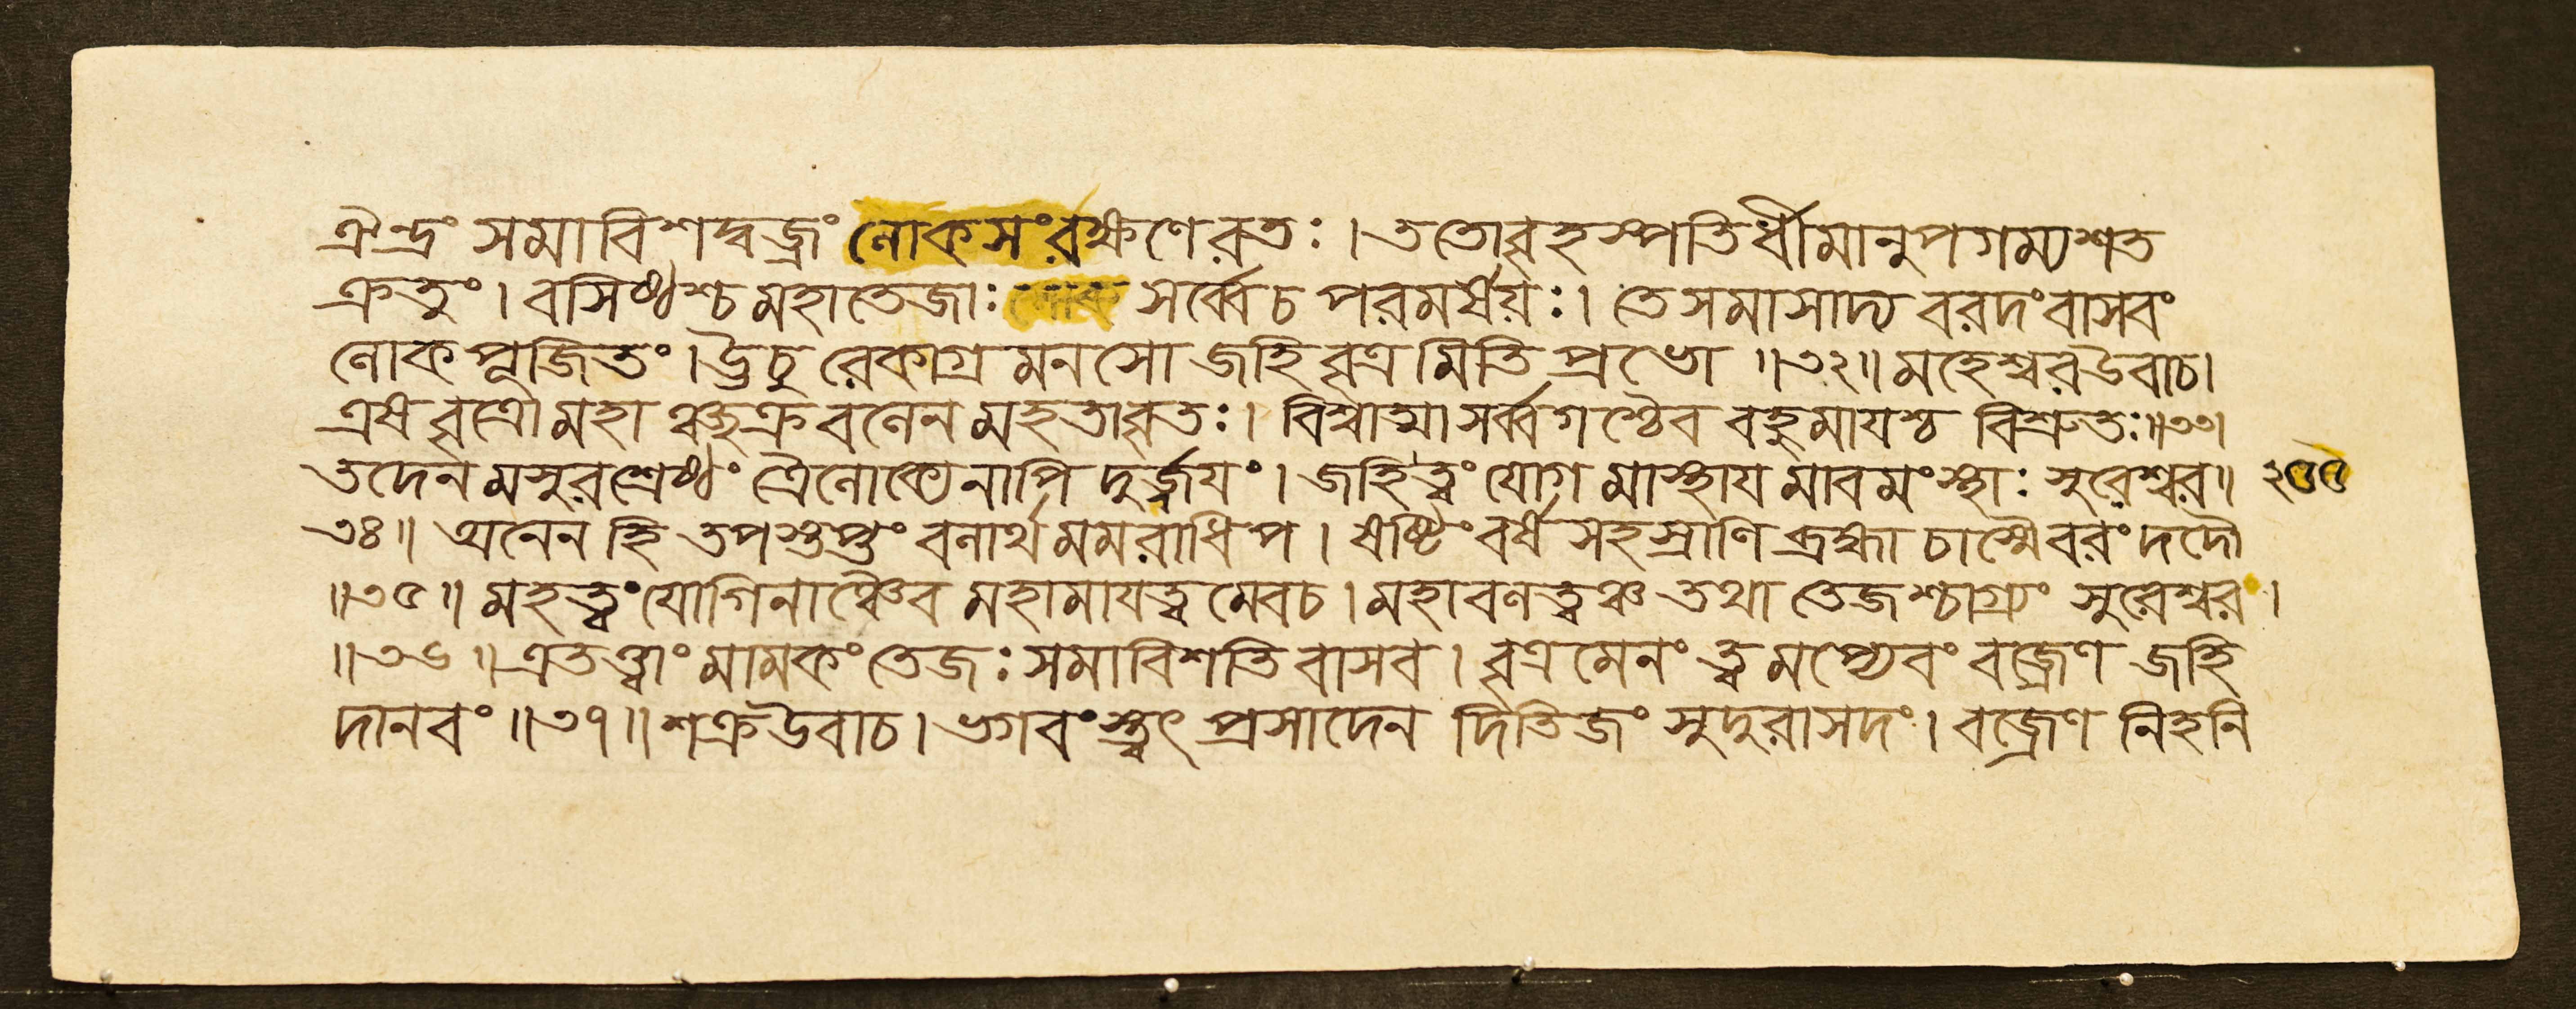 ঐন্দ্রং সমাবিশদ্বজ্রং লোকসংরক্ষণেরতঃ । ততোবৃহস্পতির্ধীমানুপগম্যশত
ক্রতুং । বসিষ্ঠশ্চমহাতেজাঃ সর্ব্বেচ পরমর্ষয়ঃ । তে সমাসাদ্য বরদংবাসবং
লোকপূজিতং । ঊচুরেকাগ্রমনসো জহিবৃত্রমিতি প্রভো ॥৩২॥ মহেশ্বরউবাচ ।
এষ বৃত্রোমহাঞ্ছক্রবলেনমহতাবৃতঃ । বিশ্বাত্মাসর্ব্বগশ্চৈব বহুমাযশ্চ বিশ্রুতঃ ॥৩৩।
তদেনমসুরশ্রেষ্ঠং ত্রৈলোক্যেনাপি দুর্জ্জযং । জহিত্বংযোগমাস্থায মাবমংস্থাঃ সুরেশ্বর ॥
৩৪॥ অনেন হি তপস্তপ্তং বলার্থমমরাধিপ । ষষ্টিংবর্ষসহস্রাণি ব্রহ্মা চাস্মৈবরংদদৌ
॥৩৫॥ মহত্ত্বংযোগিনাঞ্চৈব মহামাযত্বমেবচ । মহাবলত্বঞ্চ তথা তেজশ্চাগ্র্যং সুরেশ্বর ।
॥৩৬॥ এতত্ত্বাং মামকং তেজঃ সমাবিশতি বাসব । বৃত্রমেনং ত্বমপ্যেবং বজ্রেণ জহি
দানবং ॥৩৭॥ শক্রউবাচ । ভগবংস্ত্বৎ প্রসাদেন দিতিজং সুদুরাসদং । বজ্রেণ নিহনি